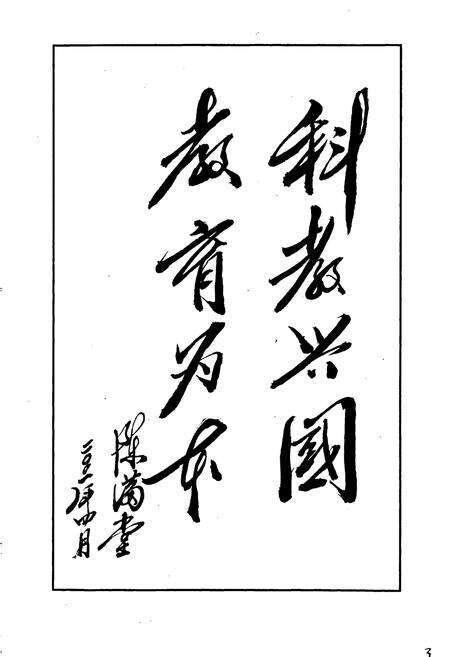 科教兴國
教育为本
陈满堂
二〇〇一年四月
3